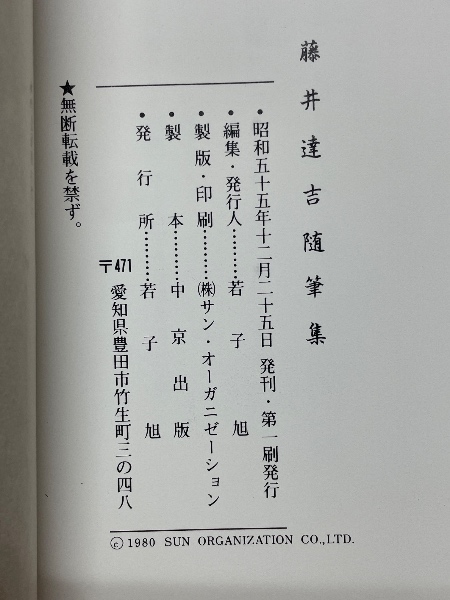 藤井達吉随筆集
•昭和五十五年十二月二十五日 発刊・第一刷発行
•編集・発行人………若子旭
•製版・印刷…………㈱サン・オーガニゼーション
•製本………中京出版
•発行所………若子旭
〒471 愛知県豊田市竹生町三の四八
★無断転載を禁ず。
ⓒ1980 SUN ORGANIZATION CO.,LTD.